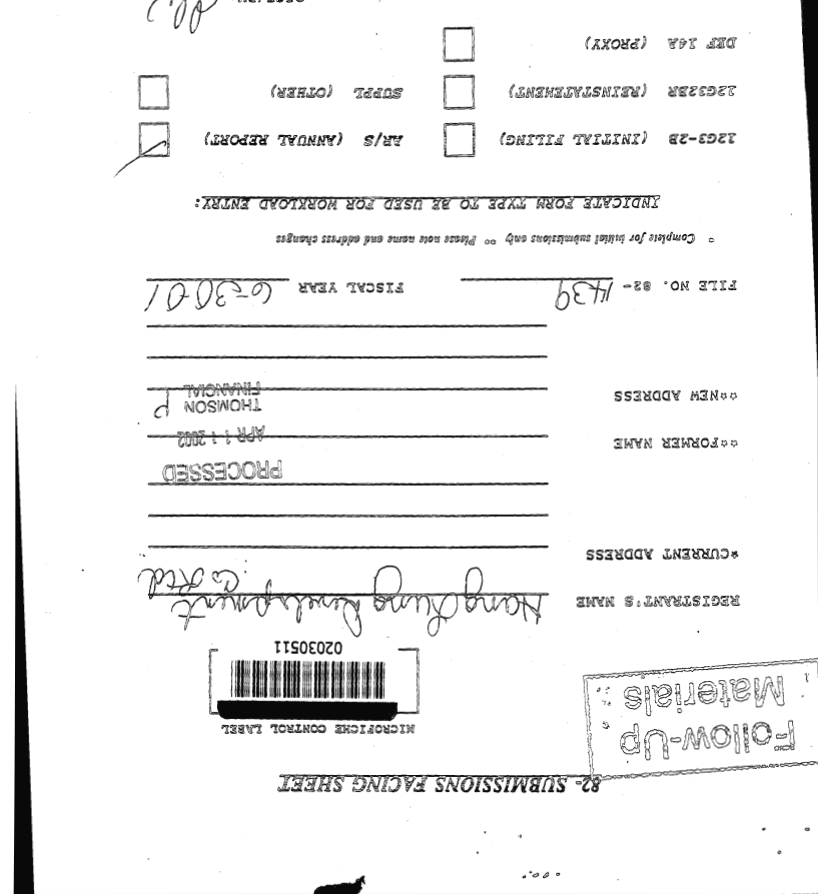 82- SUBMISSIONS FACING SHEET
Follow-Up
Materials
MICROFICHE CONTROL LABEL
02030511
REGISTRANT'S NAME Hang Lung Development Co Ltd
*CURRENT ADDRESS
PROCESSED
**FORMER NAME
APR 11 2002
**NEW ADDRESS
THOMSON P
FINANCIAL
FILE NO. 82- 1439 FISCAL YEAR 6-30-01
* Complete for initial submissions only ** Please note name and address changes
INDICATE FORM TYPE TO BE USED FOR WORKLOAD ENTRY:
12G3-2B (INITIAL FILING) AR/S (ANNUAL REPORT)
12G32BR (REINSTATEMENT) SUPPL (OTHER)
DEF 14A (PROXY)